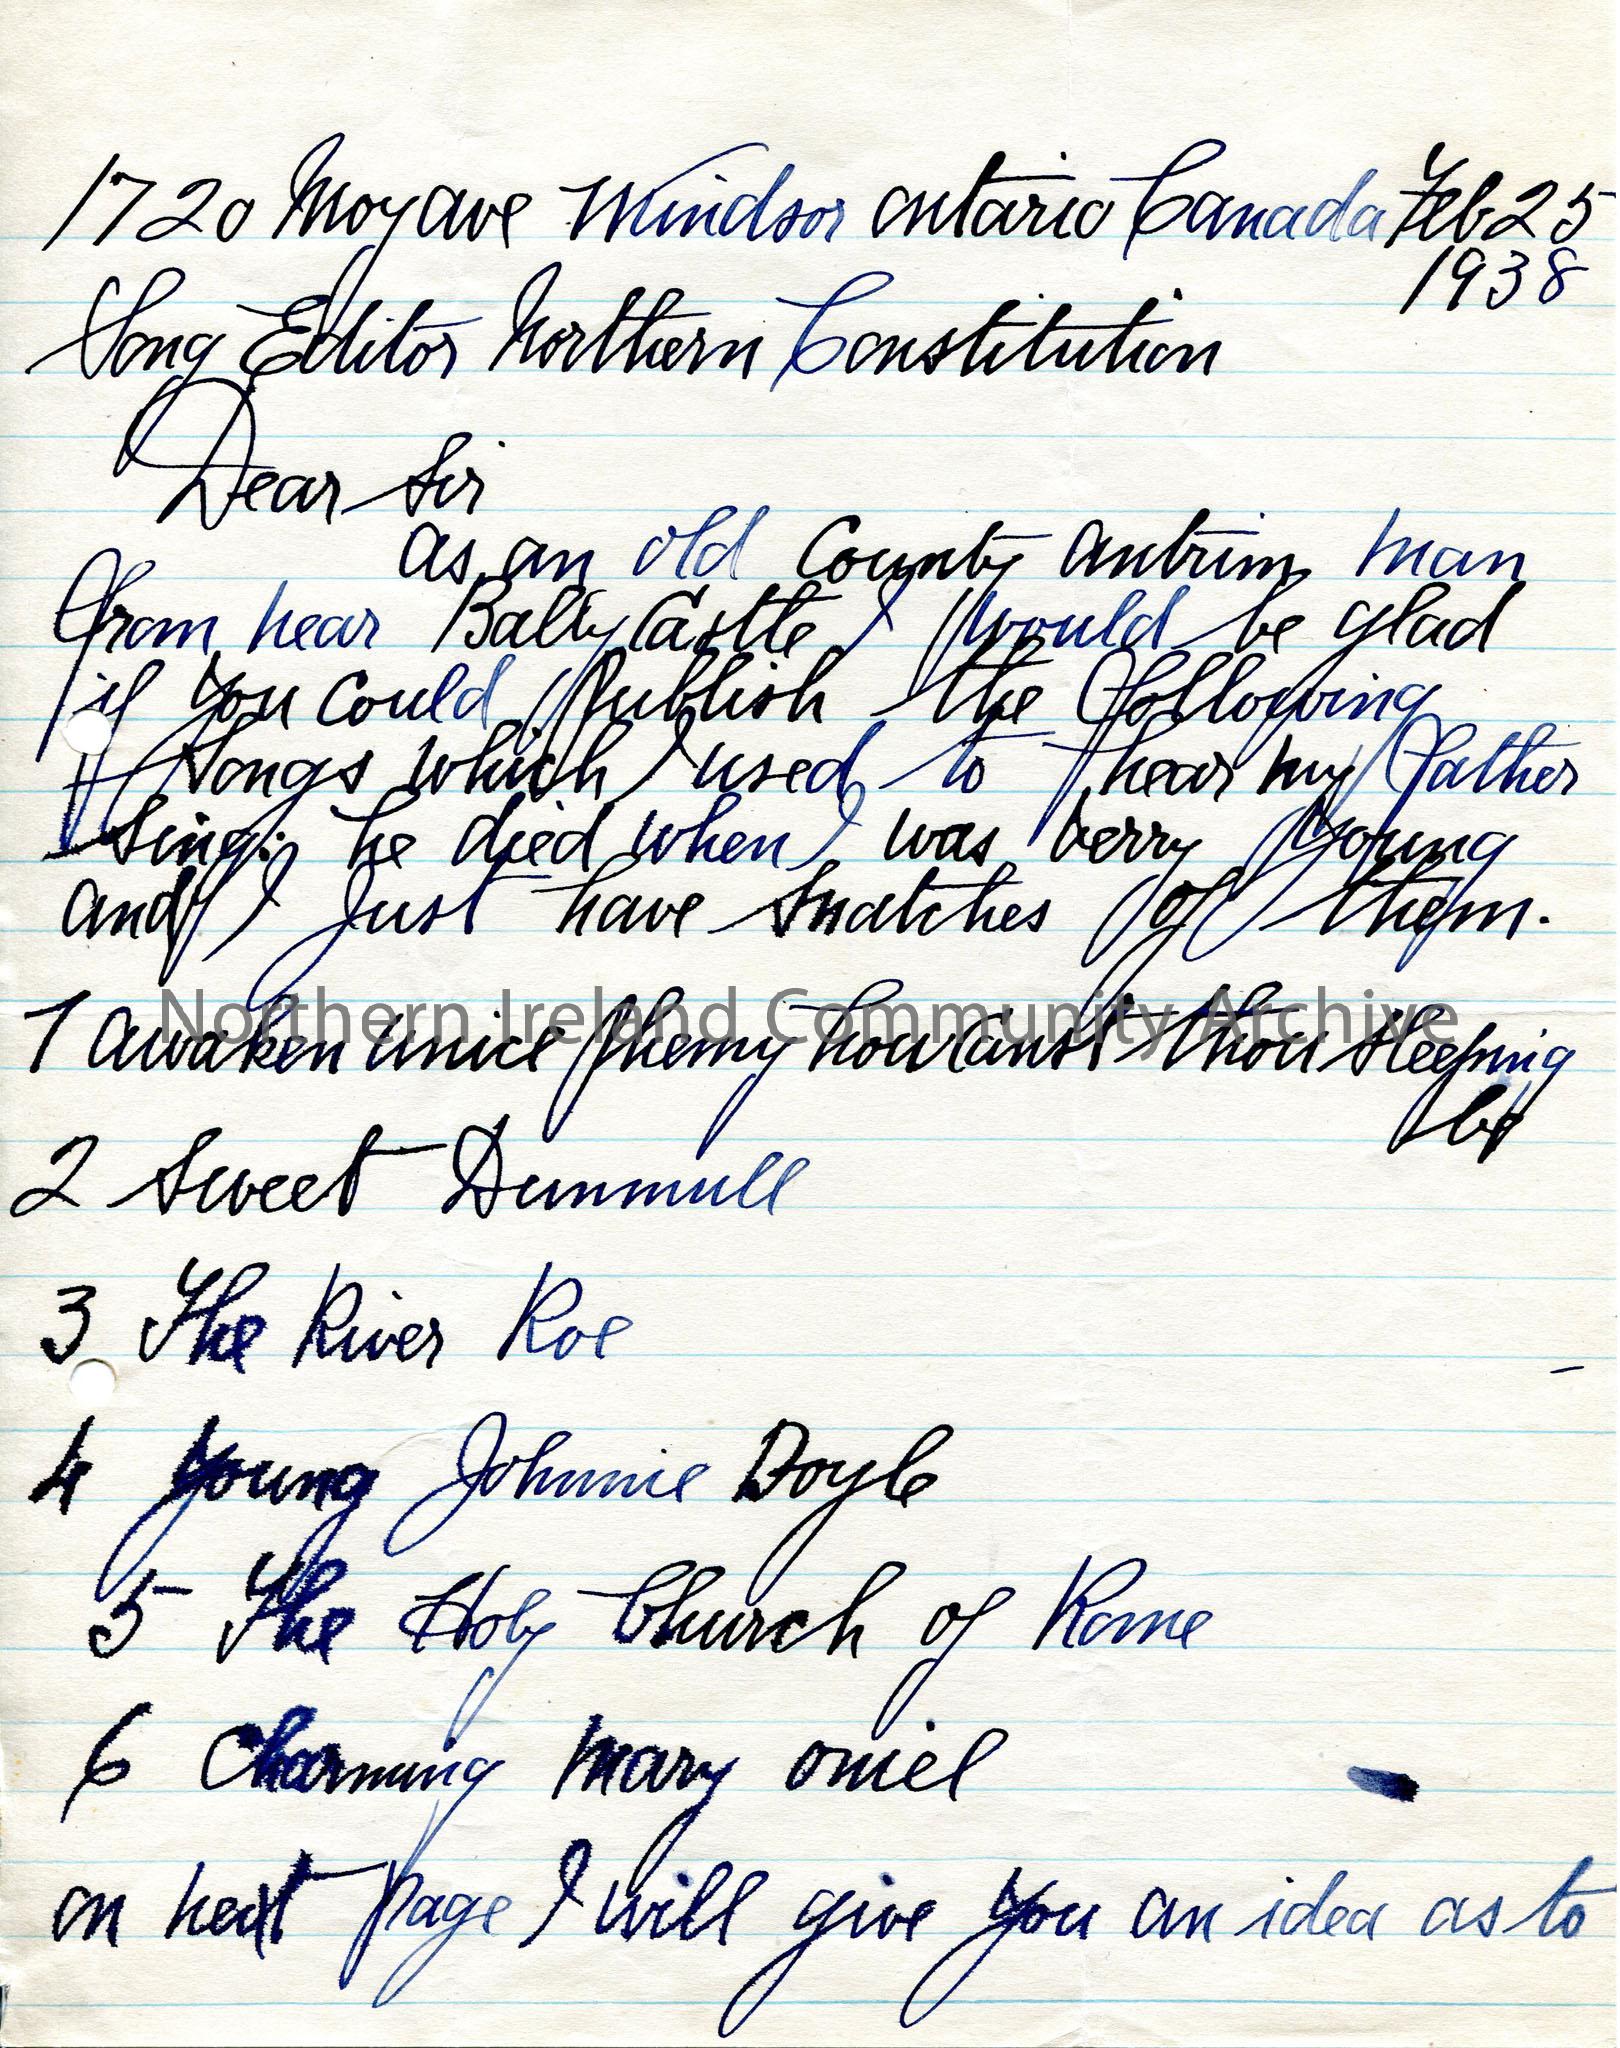 1720 Moy ave Windsor ontario Canada Feb 25
1938
Song Editor Northern Constitution
Dear Sir
as an old County antrim man
From near Bally Castle I would be glad
if you could Publish the Following
Songs which I used to hear my Father
Sing: he died when I was verry young
and I Just have Snatches of them.
Northern Ireland Community Archive
1 awaken unice phemy how canst thou sleeping
be
2 Sweet Dunmull
3 The River Roe
4 Young Johnnie Doyle
5 The Holy Church of Rome
6 Charming Mary oniel
on next page I will give you an idea as to